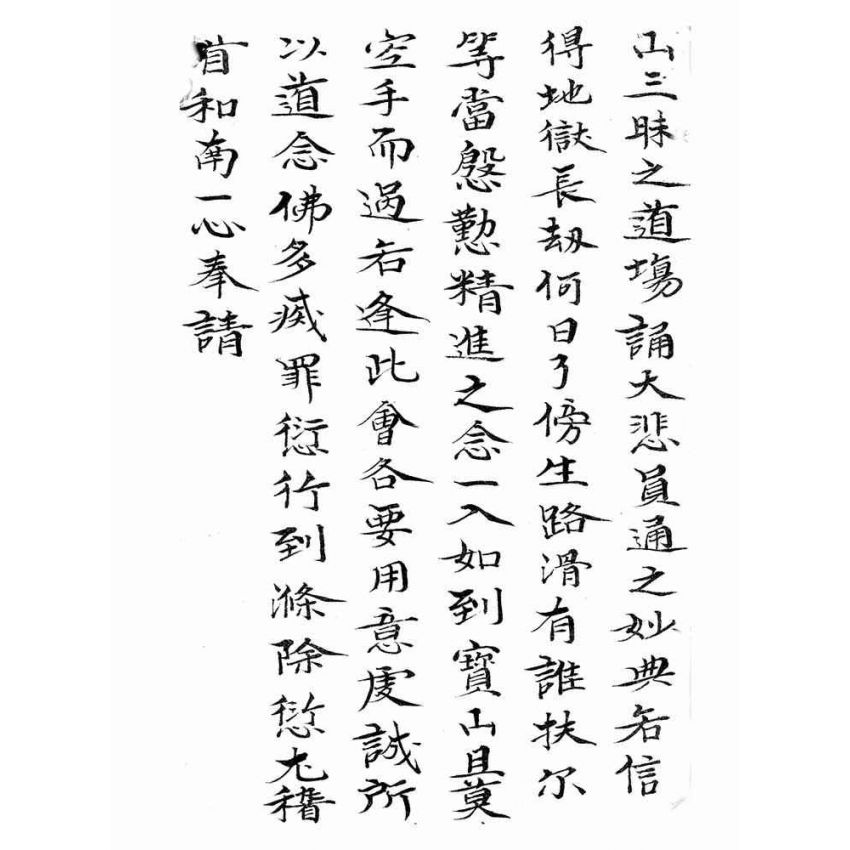 山三昧之道場誦大悲員通之妙典若信
得地獄長劫何日了傍生路滑有誰扶尔
等當慇懃精進之念一入如到寶山且莫
空手而過若逢此會各要用意虔誠所
以道念佛多滅罪愆行到滌除愆尤稽
首和南一心奉請